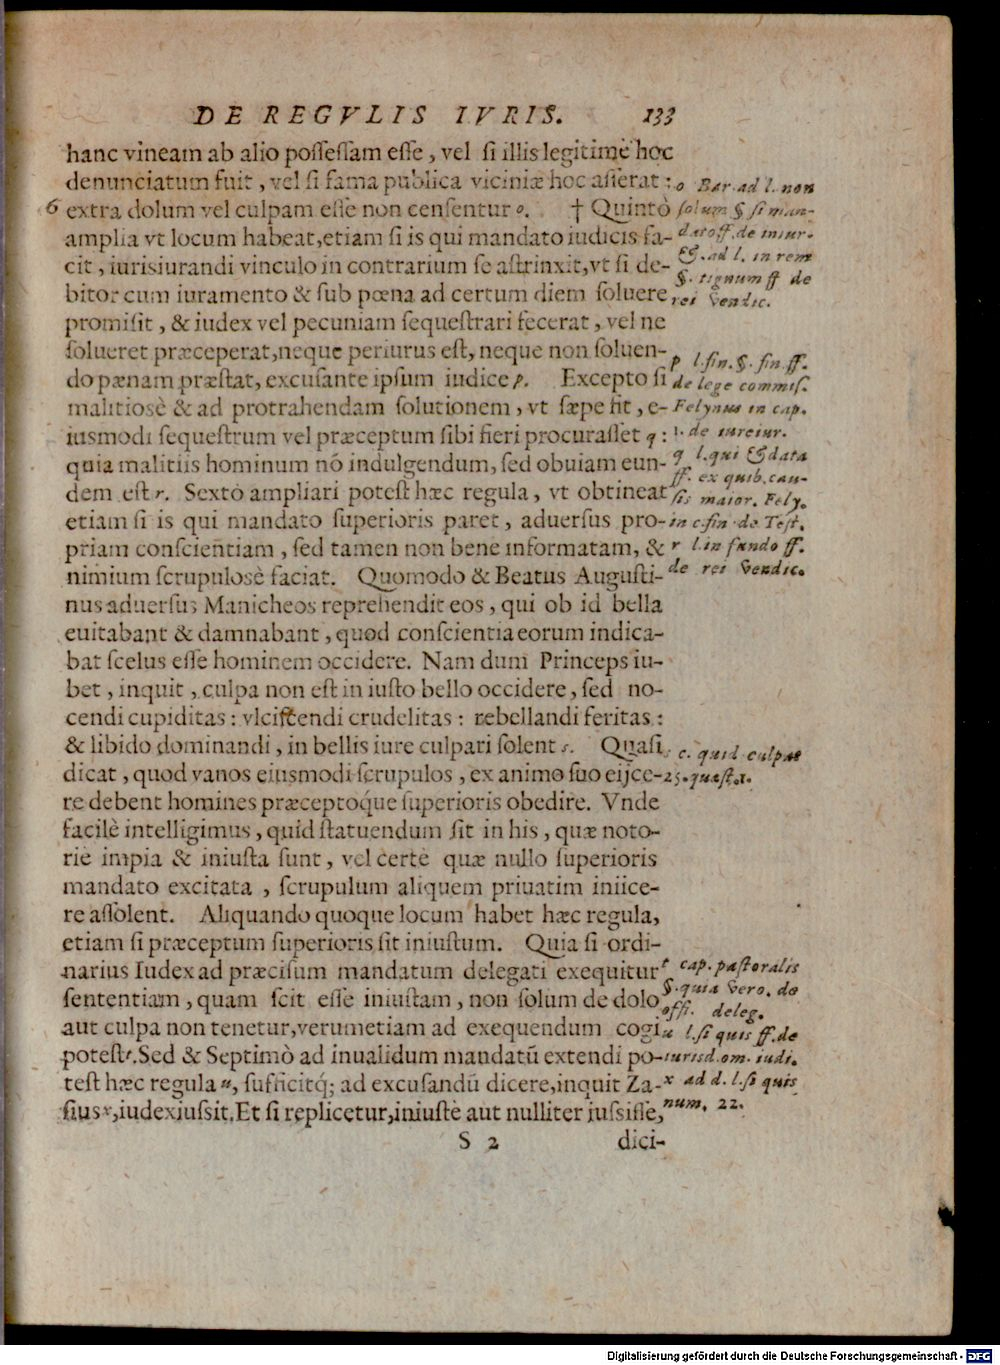 DE REGVLIS IVRIS. 133
hanc vineam ab alio poſſeſſam eſſe, vel ſi illis legitimè hoc
denunciatum fuit, vel ſi fama publica viciniæ hoc aſſerat:
6 extra dolum vel culpam eſſe non cenſentur o. † Quintò
amplia vt locum habeat, etiam ſi is qui mandato iudicis fa-
cit, iurisiurandi vinculo in contrarium ſe aſtrinxit, vt ſi de-
bitor cum iuramento & ſub pœna ad certum diem ſoluere
promiſit, & iudex vel pecuniam ſequeſtrari fecerat, vel ne
ſolueret præceperat, neque periurus eſt, neque non ſoluen-
do pœnam præſtat, excuſante ipſum iudice p. Excepto ſi
malitiosè & ad protrahendam ſolutionem, vt ſæpe fit, e-
iusmodi ſequeſtrum vel præceptum ſibi fieri procuraſſet q:
quia malitiis hominum nō indulgendum, ſed obuiam eun-
dem eſt r. Sextò ampliari poteſt hæc regula, vt obtineat
etiam ſi is qui mandato ſuperioris paret, aduerſus pro-
priam conſcientiam, ſed tamen non bene informatam, &
nimium ſcrupulosè faciat. Quomodo & Beatus Auguſti-
nus aduerſus Manicheos reprehendit eos, qui ob id bella
euitabant & damnabant, quod conſcientia eorum indica-
bat ſcelus eſſe hominem occidere. Nam dum Princeps iu-
bet, inquit, culpa non eſt in iuſto bello occidere, ſed no-
cendi cupiditas: vlciſcendi crudelitas: rebellandi feritas:
& libido dominandi, in bellis iure culpari ſolent s. Quaſi
dicat, quod vanos eiusmodi ſcrupulos, ex animo ſuo eijce-
re debent homines præceptoque ſuperioris obedire. Vnde
facilè intelligimus, quid ſtatuendum ſit in his, quæ noto-
riè impia & iniuſta ſunt, vel certè quæ nullo ſuperioris
mandato excitata, ſcrupulum aliquem priuatim iniice-
re aſſolent. Aliquando quoque locum habet hæc regula,
etiam ſi præceptum ſuperioris ſit iniuſtum. Quia ſi ordi-
narius Iudex ad præciſum mandatum delegati exequitur
ſententiam, quam ſcit eſſe iniuſtam, non ſolum de dolo
aut culpa non tenetur, verumetiam ad exequendum cogi
poteſt t. Sed & Septimò ad inualidum mandatū extendi po-
teſt hæc regula u, ſufficitq; ad excuſandū dicere, inquit Za-
ſius x, iudex iuſsit. Et ſi replicetur, iniuſtè aut nulliter juſsiſſe,
S 2 dici-
o Bar. ad l. non
ſolum § ſi man-
dato ff. de iniur.
& ad l. in rem
§. tignum ff de
rei Vendic.
p l. fin. §. fin. ff.
de lege commiſ.
Felynus in cap.
1. de iureiur.
q l. qui & data
ff. ex quib. cau-
ſis maior. Fely.
in c. fin. de Teſt.
r l. in fundo ff.
de rei Vendic.
s c. quid culpas
23. quæſt. 1.
t cap. paſtoralis
§. quia Vero. de
offi. deleg.
u l. ſi quis ff. de
iurisd. om. iudi.
x ad d. l. ſi quis
num. 22.
Digitalisierung gefördert durch die Deutsche Forschungsgemeinschaft - DFG